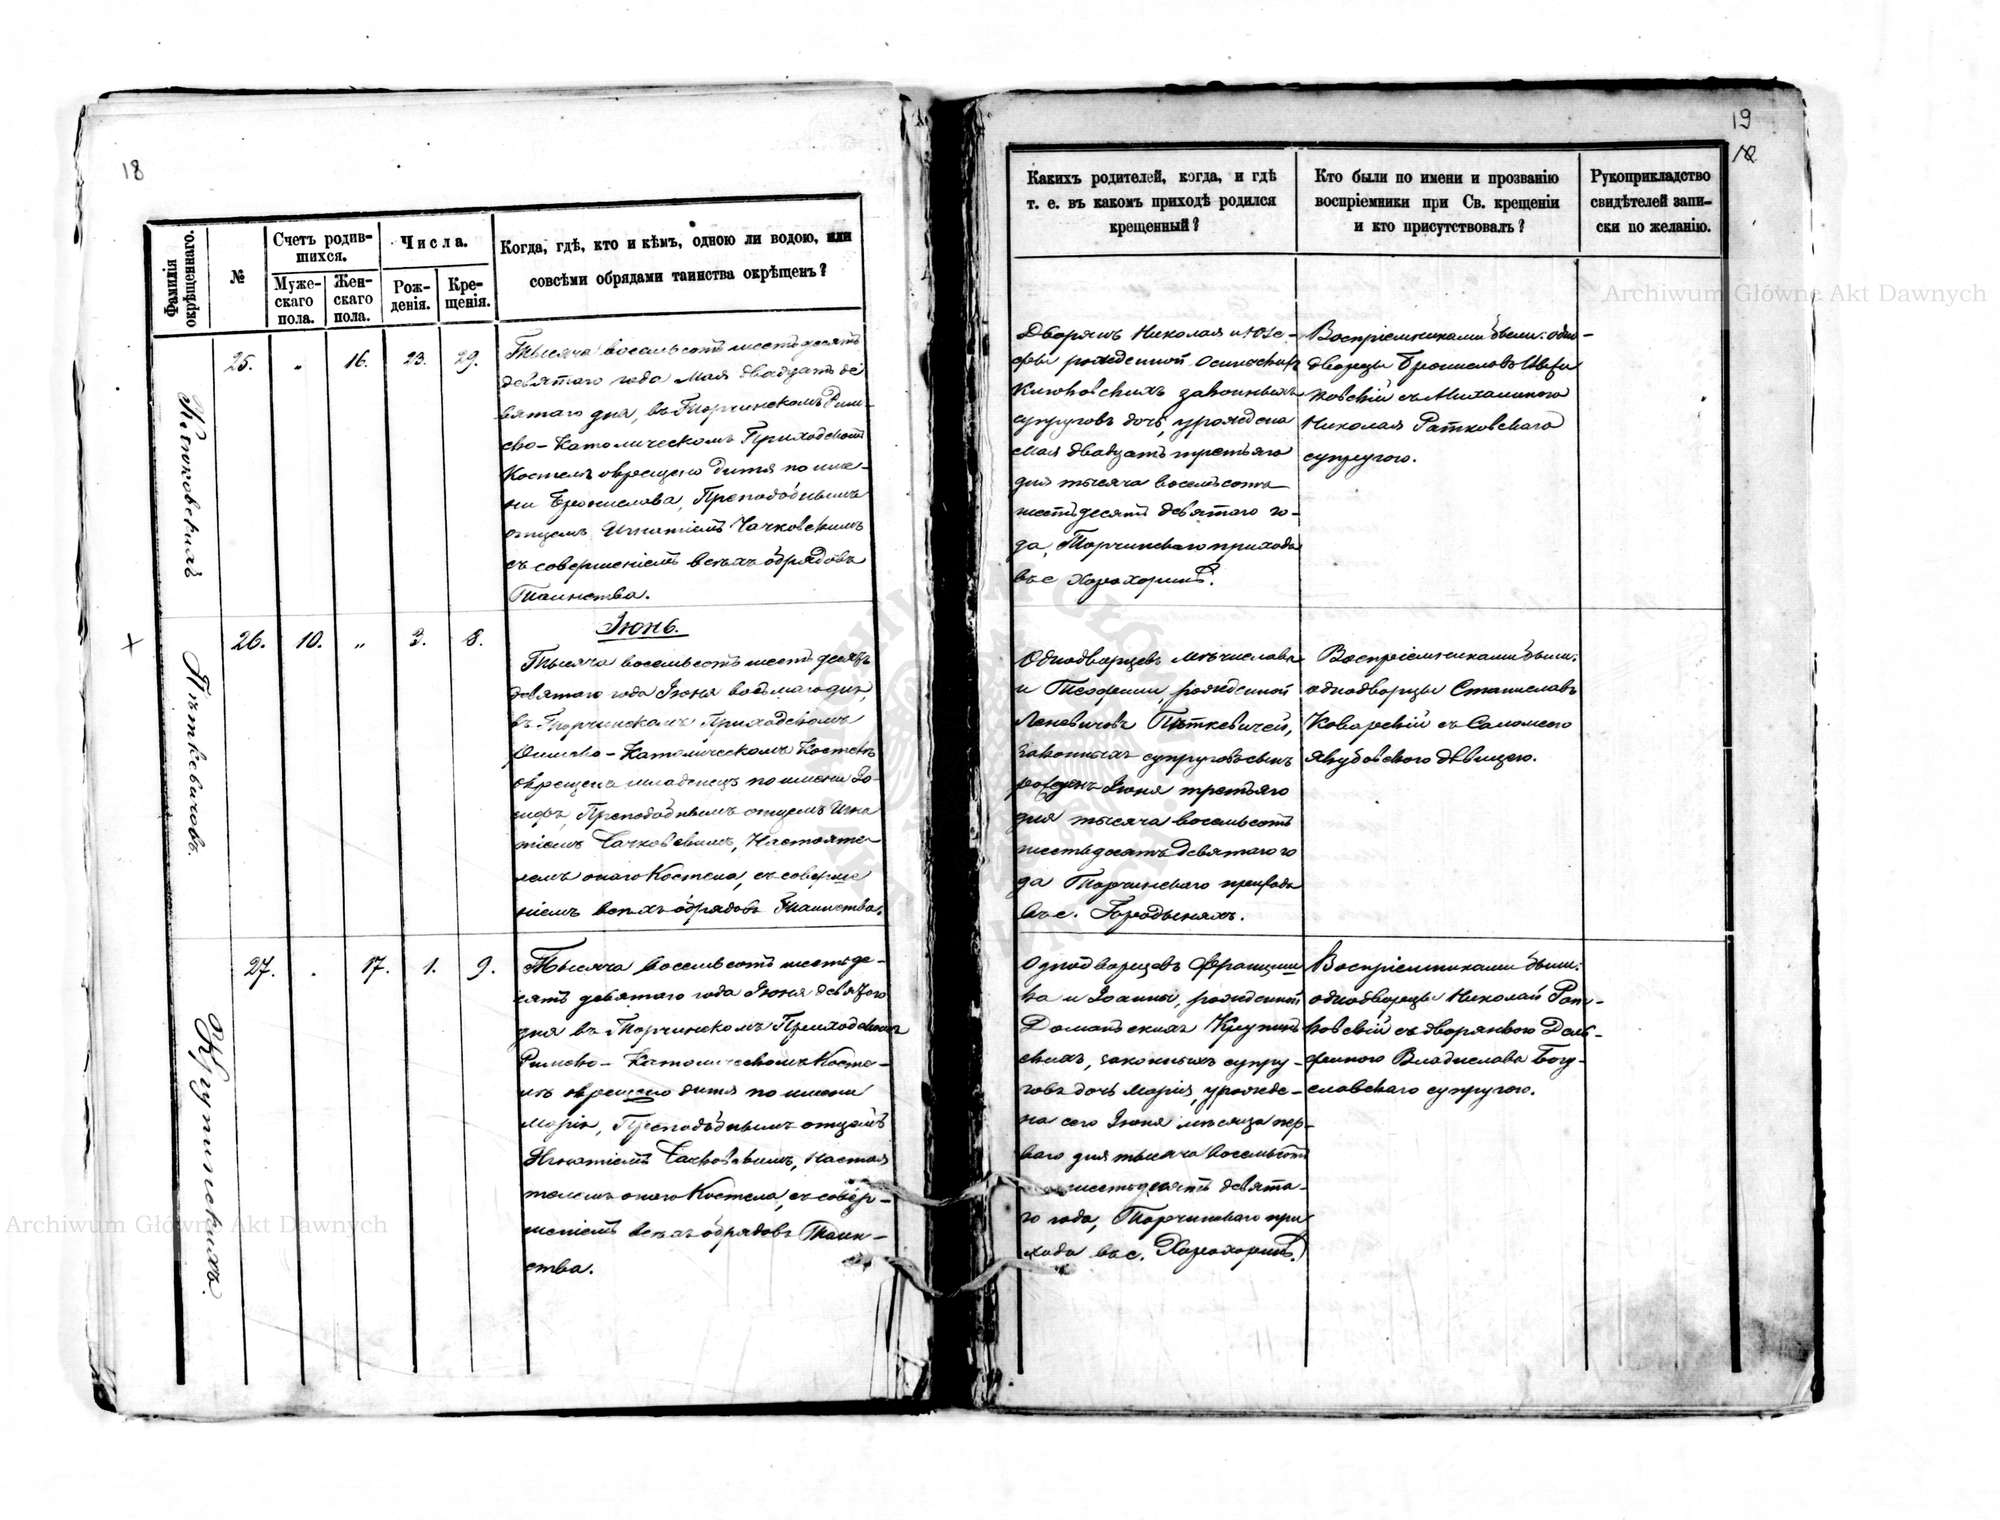 18
Фамилія окрѣщеннаго.
№
Счетъ родив-
шихся.
Муже-
скаго
пола.
Жен-
скаго
пола.
Числа.
Рож-
денія.
Кре-
щенія.
Когда, гдѣ, кто и кѣмъ, одною ли водою, или
совсѣми обрядами таинства окрѣщенъ?
25. „ 16. 23. 29.
Тысяча восемьсотъ шестьдесятъ
девятаго года Мая двадцать де
вятаго дня, въ Торчинскомъ Рим-
ско-Католическомъ Приходскомъ
Костелѣ окрещено дитя по име-
ни Бронислава, Преподобнымъ
отцемъ Игнатіемъ Чачковскимъ
съ совершеніемъ всѣхъ обрядовъ
Таинства.
Іюнь.
26. 10. „ 3. 8.
Пѣткевичовъ.
Тысяча восемьсотъ шестьдесятъ
девятаго года Іюня восьмаго дня,
въ Торчинскомъ Приходскомъ
Римско-Католическомъ Костелѣ
окрещенъ младенецъ по имени Іо-
сифъ, Преподобнымъ отцемъ Игна
тіемъ Чачковскимъ, Настояте
лемъ онаго Костела, съ соверше
ніемъ всѣхъ обрядовъ Таинства.
27. „ 17. 1. 9.
Крупинскихъ.
Тысяча восемьсотъ шестьде-
сятъ девятаго года Іюня девятого
дня въ Торчинскомъ Приходскомъ
Римско-Католическомъ Косте-
лѣ окрещено дитя по имени
Марія, Преподобнымъ отцемъ
Игнатіемъ Чачковскимъ, Настоя
телемъ онаго Костела, съ совер-
шеніемъ всѣхъ обрядовъ Таин-
ства.
19
Какихъ родителей, когда, и гдѣ
т. е. въ какомъ приходѣ родился
крещенный?
Кто были по имени и прозванію
воспріемники при Св. крещеніи
и кто присутствовалъ?
Рукоприкладство
свидѣтелей запи-
ски по желанію.
Дворянъ Николая и Юзе-
фы рожденной
законныхъ
супруговъ дочь, урождена
Мая двадцать третьяго
дня тысяча восемьсотъ
шестьдесятъ девятаго го-
да, Торчинскаго прихода
въ с. Хорохоринѣ.
Воспріемниками были: одно-
дворцы Брониславъ
съ Михалиною
Николая Ратковскаго
супругою.
Однодворцевъ Мѣчислава
и Теофиліи, рожденной
Леневичовъ Пѣткевичей,
законныхъ супруговъ сынъ
рожденъ Іюня третьяго
дня тысяча восемьсотъ
шестьдесятъ девятаго го
да Торчинскаго прихода
въ с. Городыняхъ.
Воспріемниками были:
однодворцы Станиславъ
Коварскій съ Саломеею
Якубовскою дѣвицею.
Однодворцевъ Францишка
и Іоанны, рожденной
Доманскихъ Крупин-
скихъ, законныхъ супру-
говъ дочь Марія, урожде-
на сего Іюня мѣсяца пер-
ваго дня тысяча восемьсотъ
шестьдесятъ девята-
го года, Торчинскаго при
хода въ с. Хорохоринѣ.
Воспріемниками были:
однодворецъ Николай Рат-
ковскій съ дворянкою Дель-
финою Владислава Богу-
славскаго супругою.
Archiwum Główne Akt Dawnych
Archiwum Główne Akt Dawnych